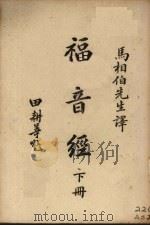 馬相伯先生譯
福音經 下冊
田耕莘